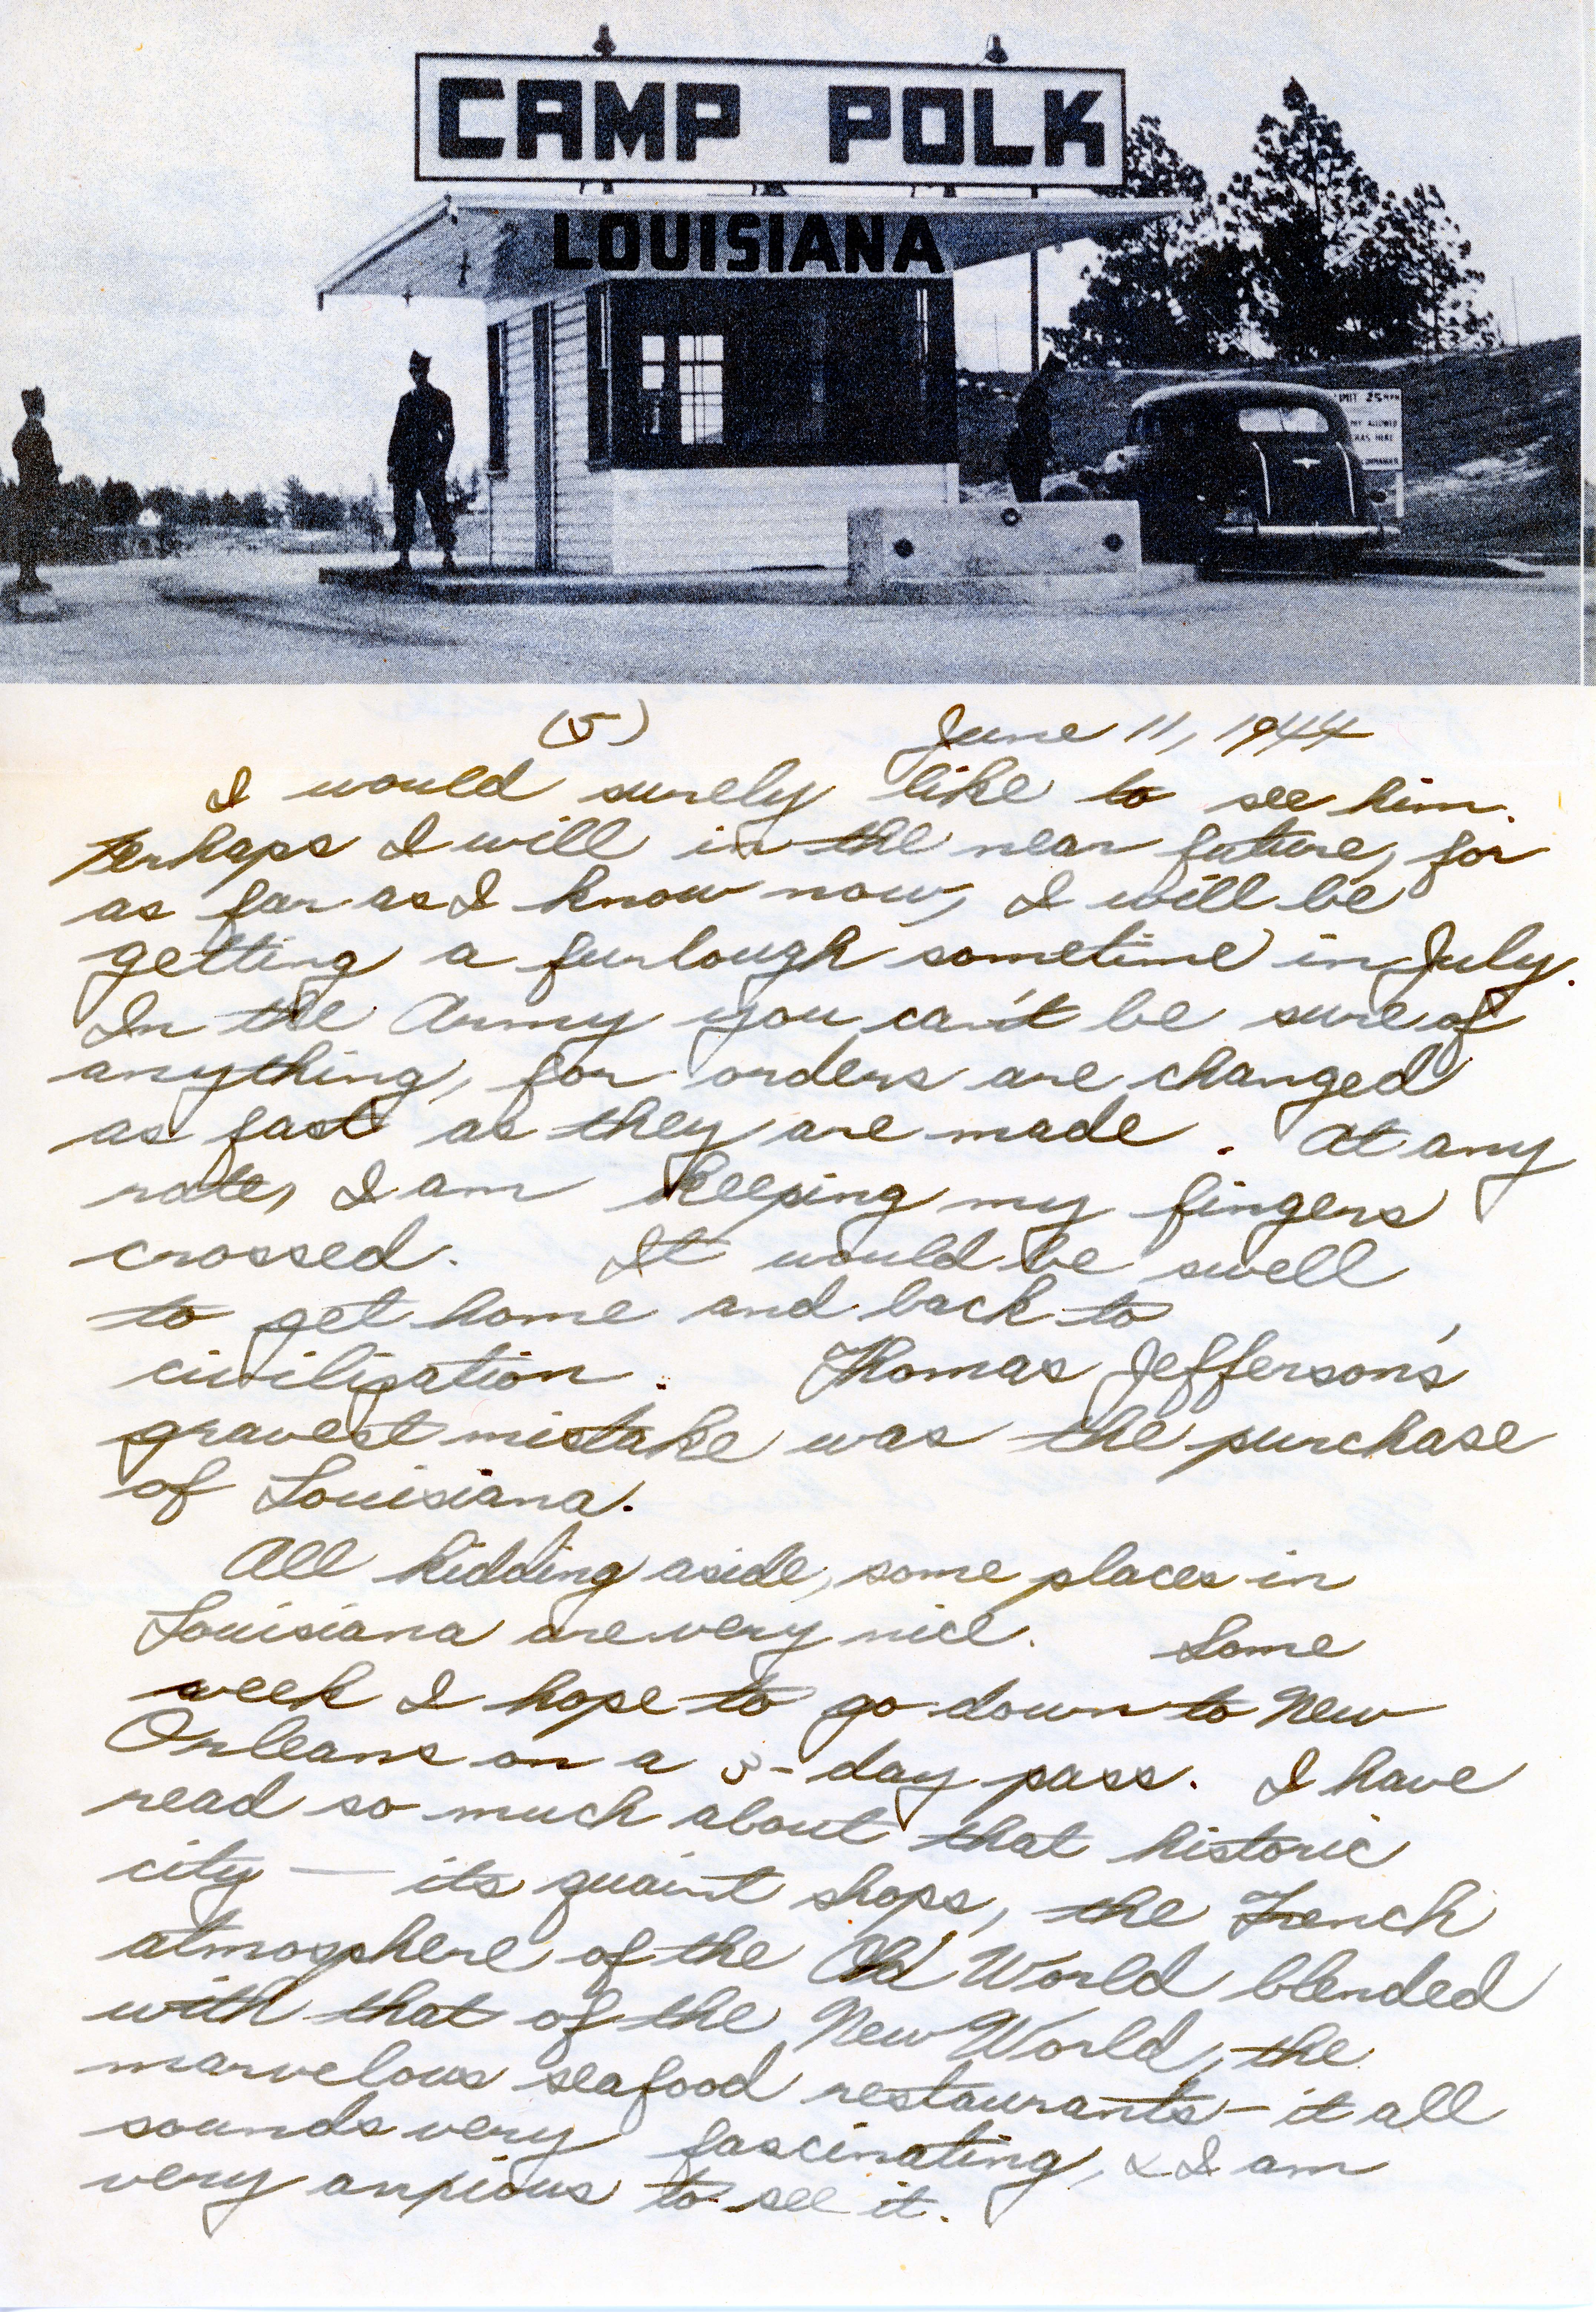 CAMP POLK
LOUISIANA
LIMIT 25 MPH
ALLOWED
HERE
(5) June 11, 1944
I would surely like to see him.
Perhaps I will in the near future, for
as far as I know now, I will be
getting a furlough sometime in July.
In the Army you can't be sure of
anything, for orders are changed
as fast as they are made. At any
rate, I am keeping my fingers
crossed. It would be swell
to get home and back to
civilization. Thomas Jefferson's
gravest mistake was the purchase
of Louisiana.
All kidding aside, some places in
Louisiana are very nice. Some
week I hope to go down to New
Orleans on a 3-day pass. I have
read so much about that historic
city — its quaint shops, the French
atmosphere of the Old World blended
with that of the New World, the
marvelous seafood restaurants - it all
sounds very fascinating, & I am
very anxious to see it.